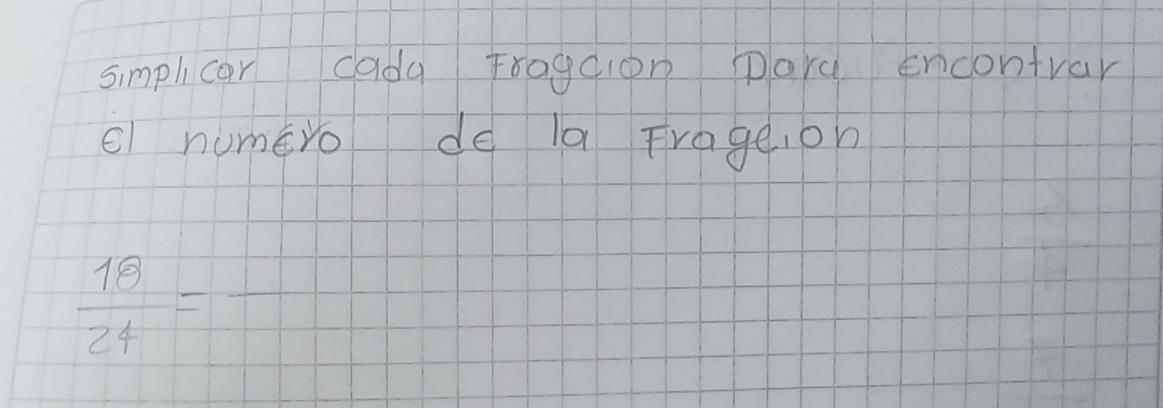 simplicar cada Fragcion Para encontrar
el numero de la Fragcion
18
24 =